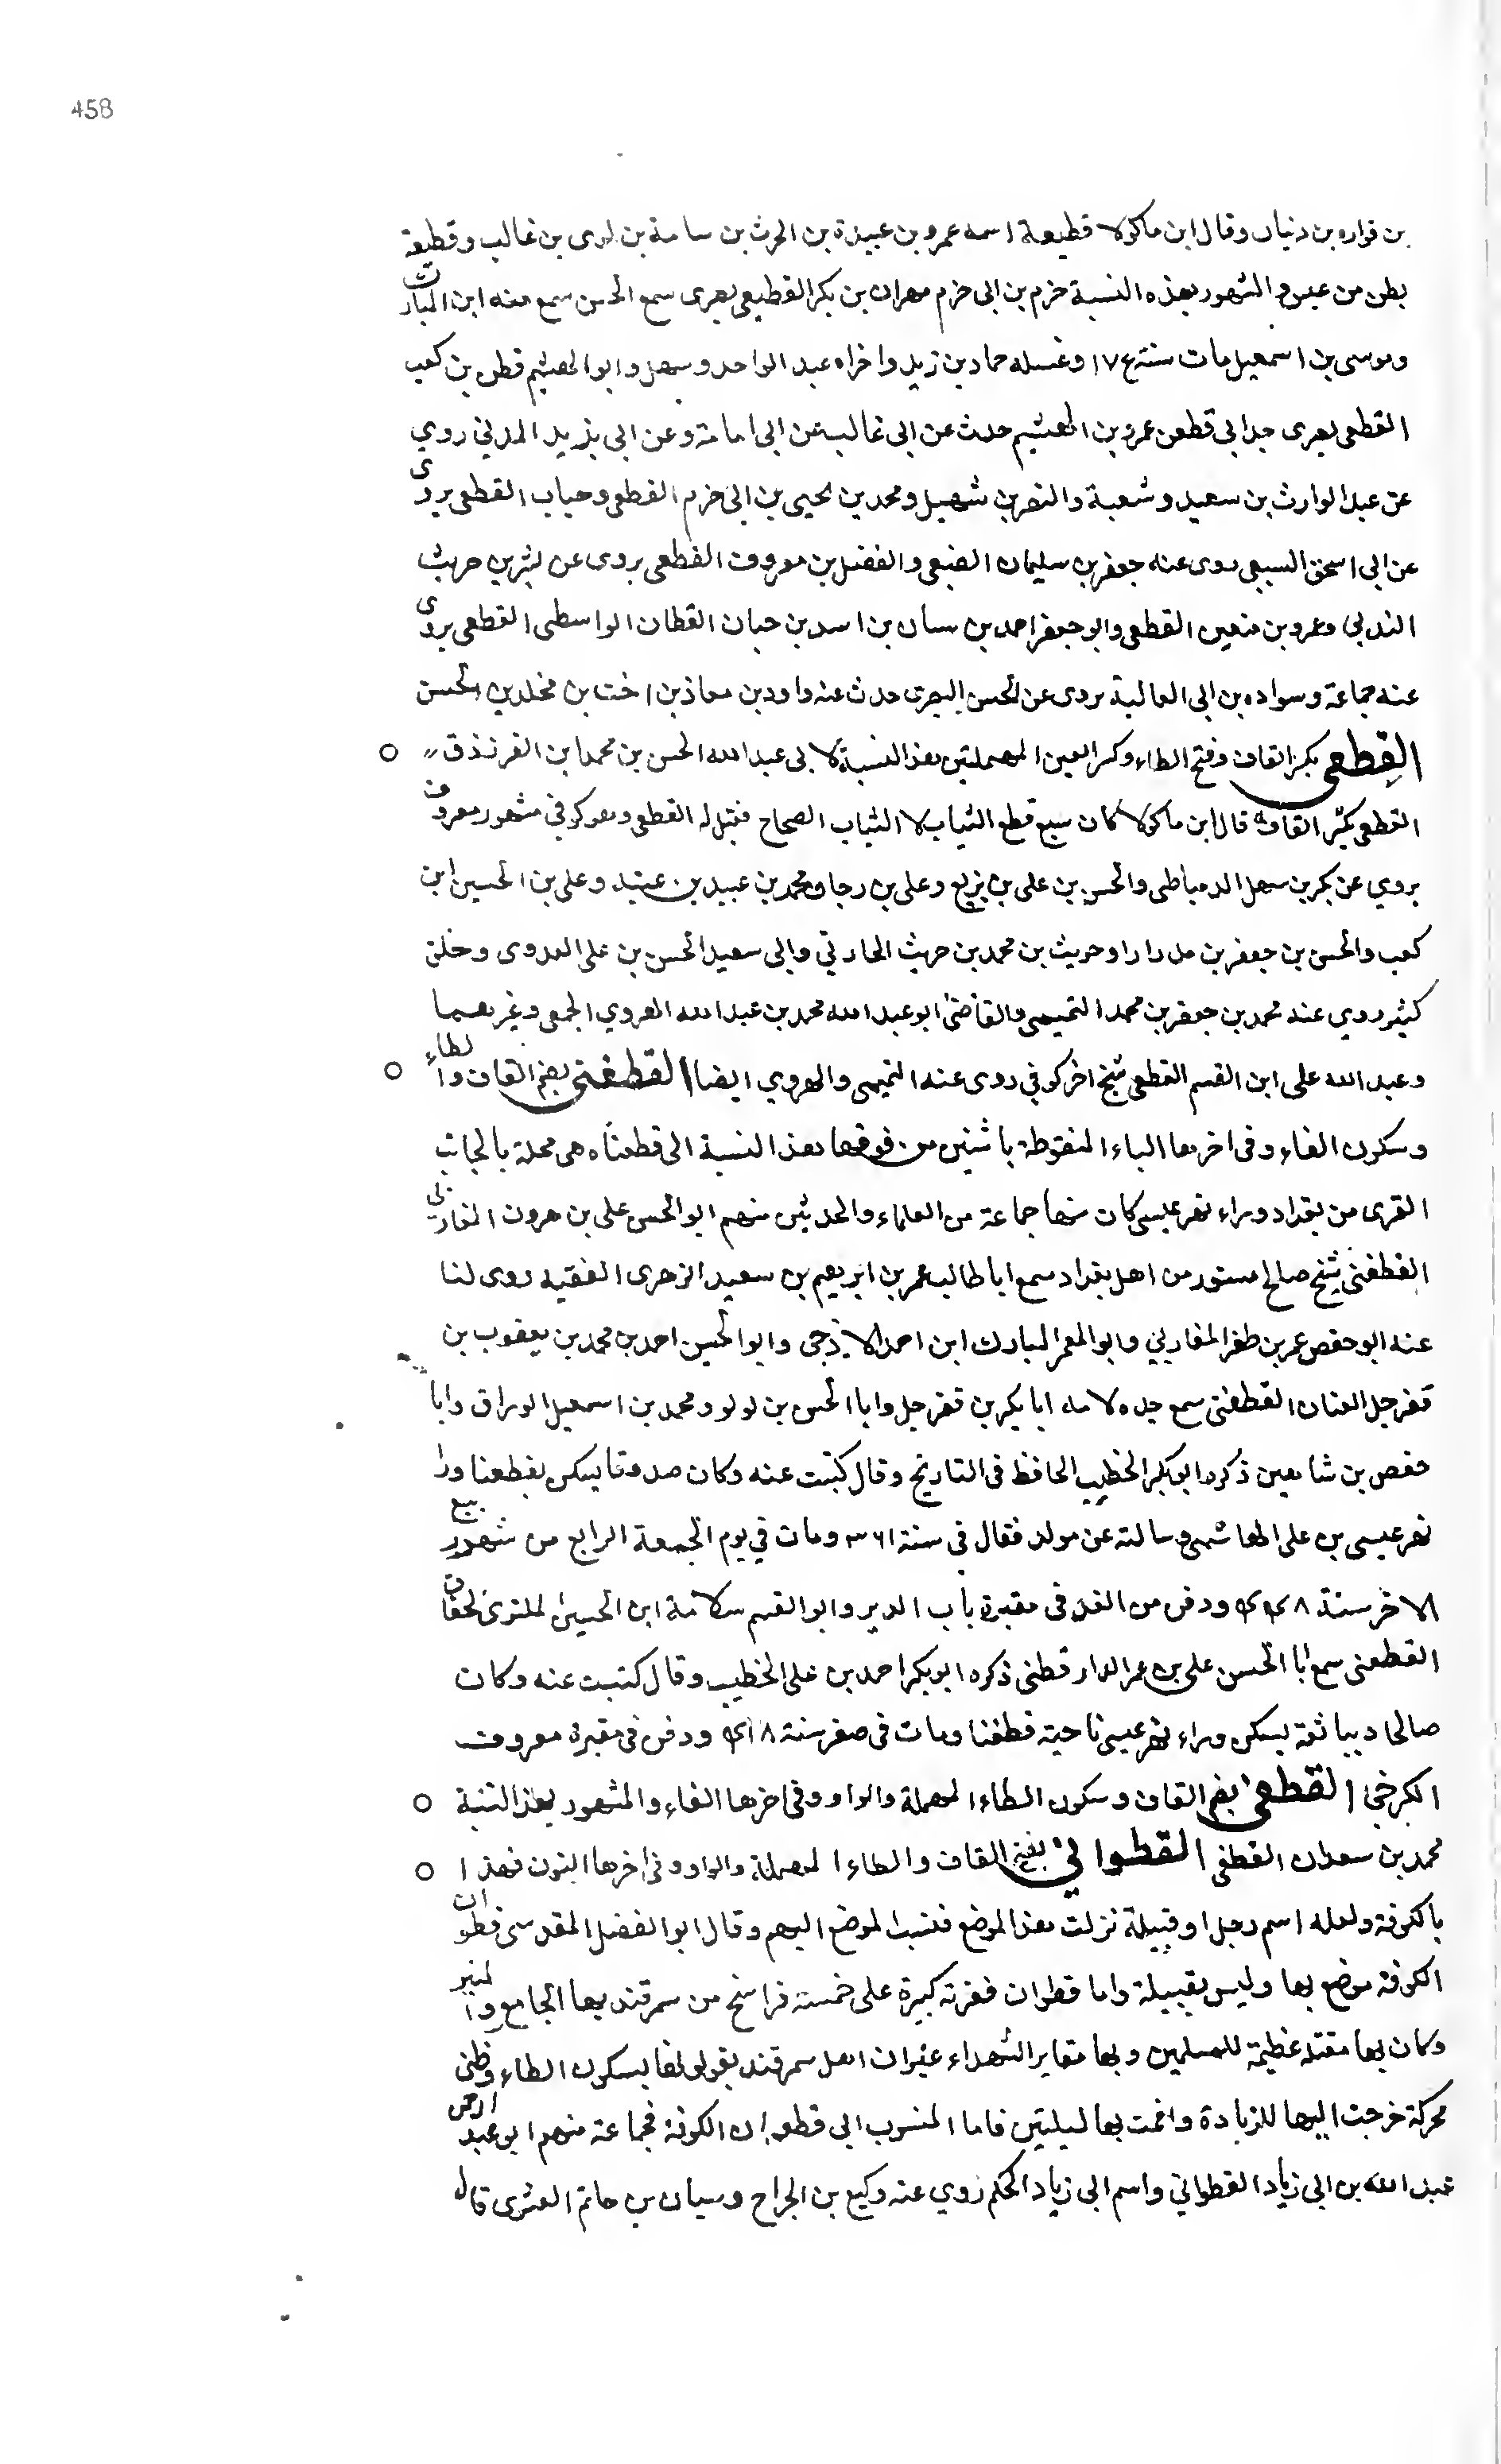 458
بن فزاره بن ذبيان وقال ابن ماكولا قطيعة اسمه عمرو بن عبيدة بن الحرث بن سامة بن لوى بن غالب وقطيعة
بطن من عبس والمشهور بهذه النسبة حزم بن ابى حزم مهران بن بكر القطيعى بصرى سمع الحسن سمع منه ابن المبارك
وموسى بن اسمعيل مات سنة وغسله حماد بن زيد واخواه عبد الواحد وسهل وابو الهيثم قطن بن كعب
القطعى بصرى جد ابى قطن عمرو بن الهيثم حدث عن ابى غالب عن ابى امامة وعن ابى يزيد المدنى روي
عن عبد الوارث بن سعيد وشعبة والنضر بن شميل ومحمد بن يحيى بن ابى حزم القطعى وحباب القطعى يروى
عن ابى اسحق السبيعى روى عنه جعفر بن سليمان الضبعى والفضل بن معروف القطعى يروى عن بشر بن حرب
الندبى وعمرو بن القطعى وابو جعفر احمد بن سنان بن اسد بن حبان القطان الواسطى القطعى يروى
عنه جماعة وسواده بن ابى العالية يروى عن الحسن البصرى حدث عنه داود بن معاذ بن اخت بن مخلد بن الحسن
القِطعى بكسر القاف وفتح الطاء وكسر العين المهملتين هذا النسبة لابى عبد الله الحسن بن محمد ابن الفرزدق
القطعى بكسر القاف قال ابن ماكولا كان يبيع قطع الثياب لا الثياب الصحاح فقيل له القطعى وهو كوفى مشهور معروف
يروي عن بكر بن سهل الدمياطى والحسن بن على بن بزيع وعلى بن رجا ومحمد بن عبيد بن عتبه وعلى بن الحسين ابن
كعب والحسن بن جعفر بن مدرارا وحريث بن محمد بن حريث الحارثي وابى سعيد الحسن بن على العدوى وخلق
كثير روي عنه محمد بن جعفر بن محمد التميمى والقاضى ابو عبد الله محمد بن عبد الله الهروي الجعفى وغيرهما
وعبد الله على ابن القسم القطعى شيخ اخر كوفى روى عنه التميمى والهروي ايضا القطفتى بضم القاف والطاء
وسكون الفاء وفى اخرها الباء المنقوطة باثنتين من فوقها هذا النسبة الى قطفتا وهى محلة بالجانب
الغربى من بغداد وراء نهر عيسى كان منها جماعة من العلماء والمحدثين منهم ابو الحسن على بن هرون المغازلى
القطفتى شيخ صالح مستور من اهل بغداد سمع ابا طالب عمر بن ابراهيم بن سعيد الزهرى الفقيه روى لنا
عنه ابو حفص عمر بن ظفر المغازلي وابو المعمر المبارك ابن احمد الازجى وابو الحسين احمد بن محمد بن يعقوب بن
قفرجل القطفتى سمع جده لامه ابا بكر بن قفرجل وابا الحسن بن لولو ومحمد بن اسمعيل الوراق وابا
حفص بن شاهين ذكره ابو بكر الخطيب الحافظ فى التاريخ وقال كتبت عنه وكان صدوقا يسكن بقطفتا ورا
نهر عيسى بن على الهاشمى وسالته عن مولد فقال فى سنة ٣٦١ ومات في يوم الجمعة الرابع من شهور ربيع
الاخر سنة ودفن من الغد فى مقبرة باب الدير وابو القسم سلامة ابن الحسين لخفاف
القطفتى سمع ابا الحسن على بن عمر الدارقطنى ذكره ابو بكر احمد بن على الخطيب وقال كتبت عنه وكان
صالحا دينا ثقة يسكن وراء نهر عيسى ناحية قطفتا ومات فى صفر سنة ودفن فى مقبرة معروف
الكرخى القطفى بضم القاف وسكون الطاء المهملة والواو وفى اخرها الفاء والمشهور بهذا النسبة
محمد بن سعدان القطفى القطوانى بفتح القاف والطاء المهملة والواو وفى اخرها النون فهذا
بالكوفة ولعله اسم رجل او قبيلة نزلت هذا الموضع فنسب الموضع اليهم وقال ابو الفضل المقدسى قطوان
الكوفة موضع بها وليس بقبيلة واما قطوان فقرية كبيرة على خمسة فراسخ من سمرقند بها الجامع والمنبر
وكان بها مقتلة عظيمة للمسلمين وبها مقابر الشهداء غير ان اهل سمرقند يقولونها بسكون الطاء وظنى
محركة خرجت اليها للزيادة واقمت بها ليلتين فاما المنسوب الى قطوان الكوفة فجماعة منهم ابو عبد الرحمن
عبد الله بن ابى زياد القطوانى واسم ابى زياد الحكم روي عنه وكيع بن الجراح وسيان بن حاتم العنزى قال